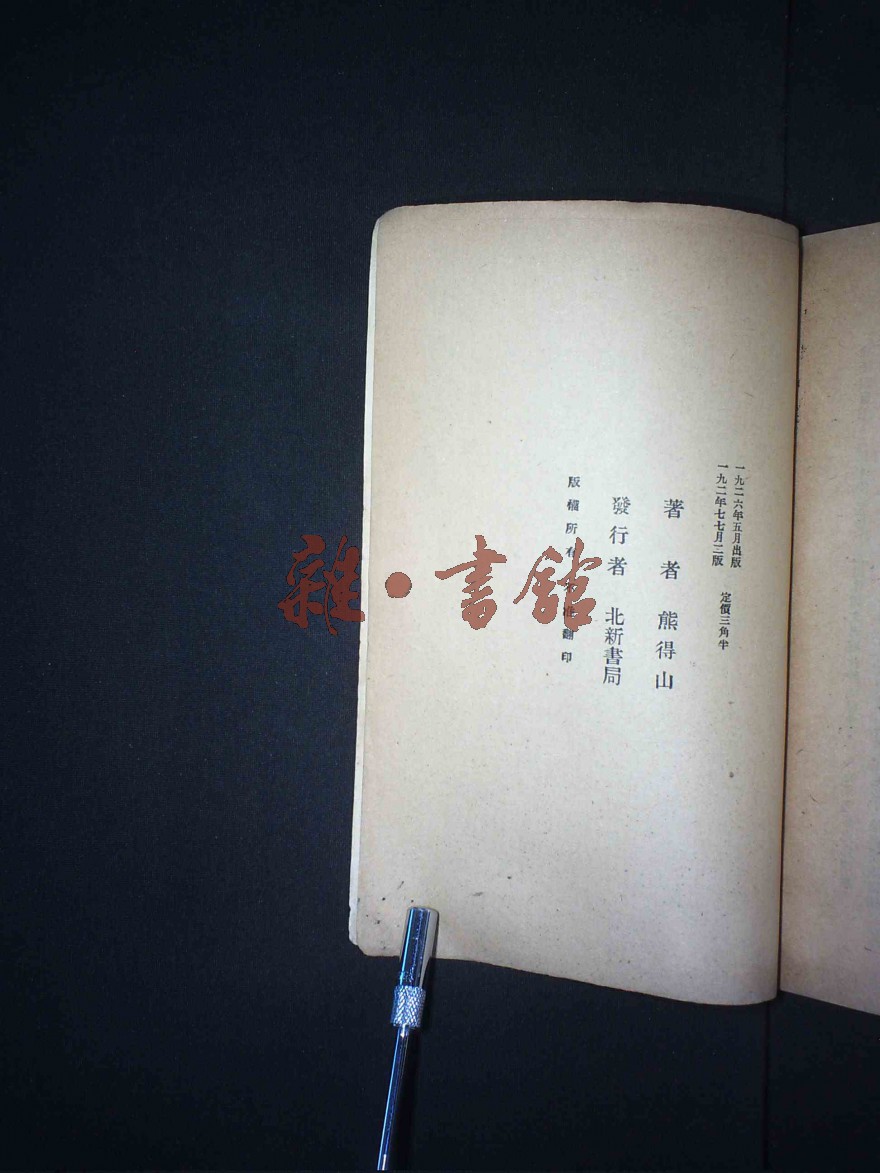 一九二六年五月出版
一九二年七七月二版
定價三角半
著者 熊得山
發行者 北新書局
版權所有 翻印
雜•書館